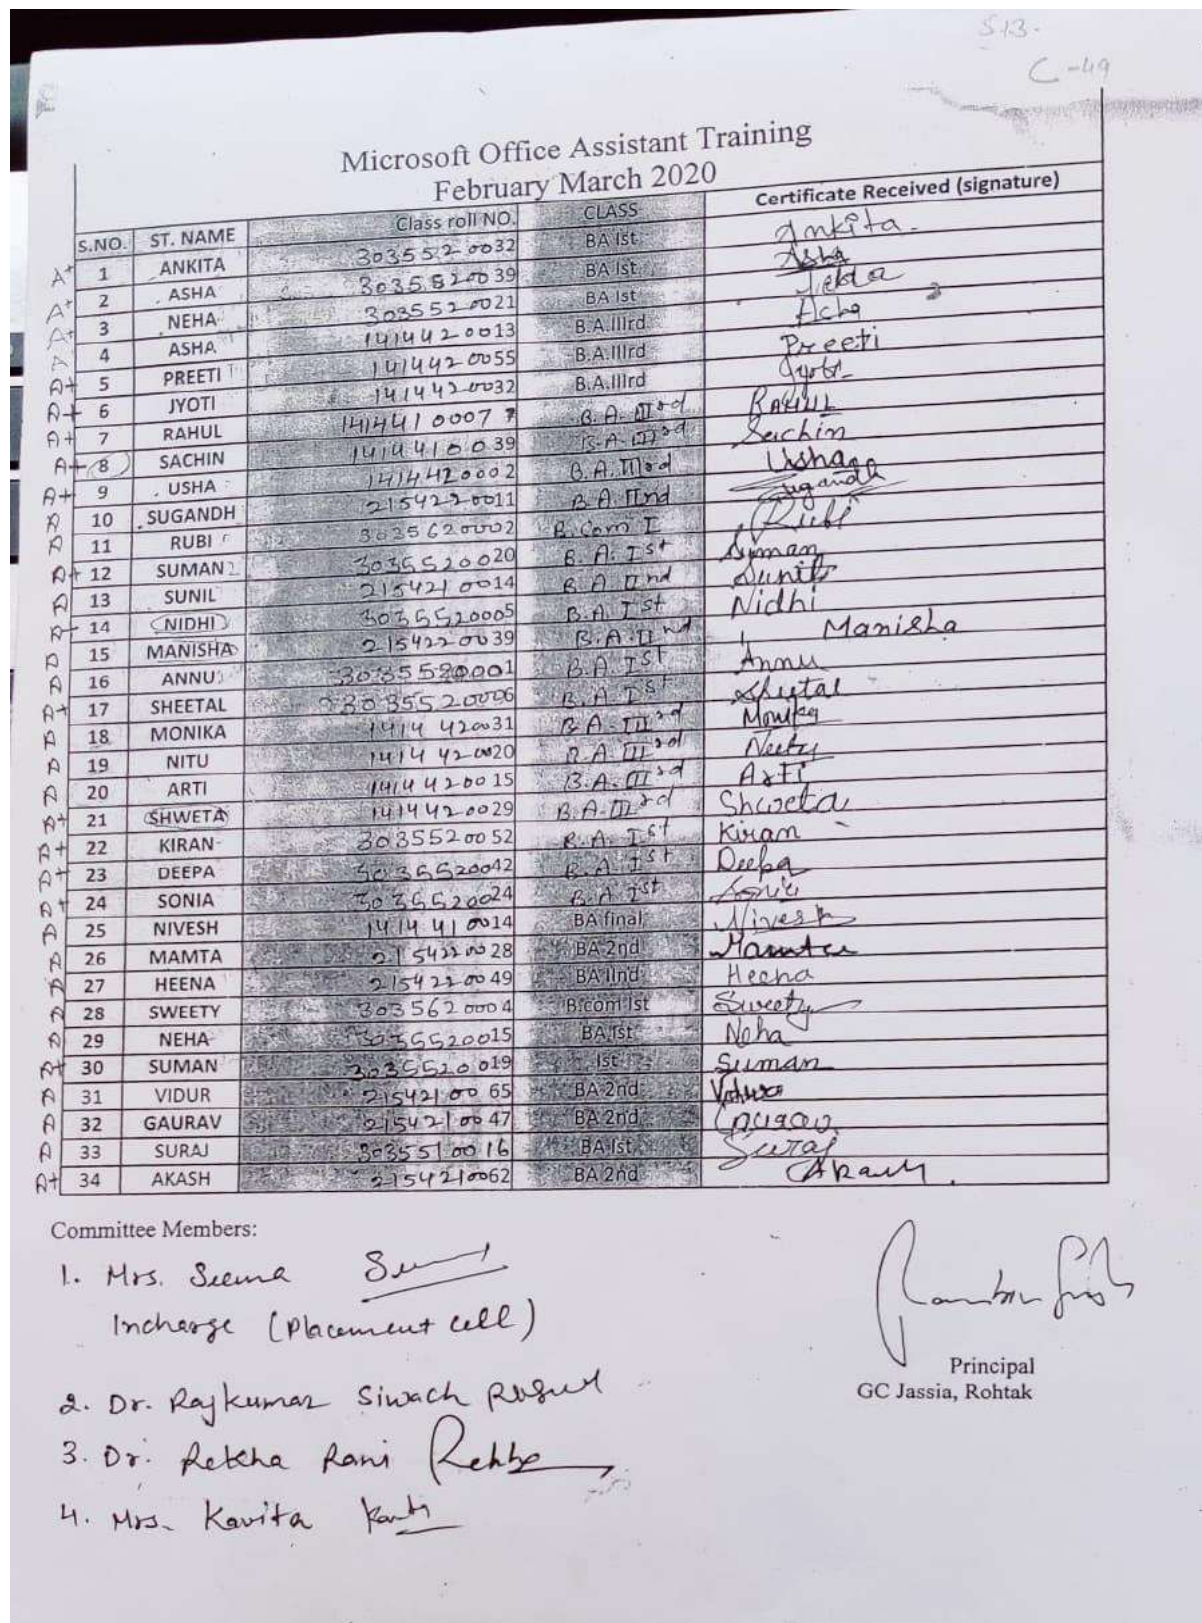 S13.
C-49
Microsoft Office Assistant Training
February March 2020
S.NO. ST. NAME Class roll NO. CLASS Certificate Received (signature)
A+ 1 ANKITA 3035520032 BA Ist Ankita
A+ 2 ASHA 3035520039 BA Ist Asha
A+ 3 NEHA 3035520021 BA Ist
A 4 ASHA 1414420013 B.A.IIIrd
A+ 5 PREETI 1414420055 B.A.IIIrd Preeti
A+ 6 JYOTI 1414420032 B.A.IIIrd Jyoti
A+ 7 RAHUL 1414410007 B.A. IIIrd RAHUL
A+ 8 SACHIN 1414410039 B.A. IIIrd Sachin
A+ 9 USHA 1414420002 B.A. IIIrd Usha
A 10 SUGANDH 2154220011 B.A. IInd Sugandh
A 11 RUBI 3035620002 B.Com I Rubi
A+ 12 SUMAN 3035520020 B.A. Ist Suman
A 13 SUNIL 2154210014 B.A IInd Sunil
14 NIDHI 3035520005 B.A Ist Nidhi
A 15 MANISHA 2154220039 B.A. IInd Manisha
A 16 ANNU 3035520001 B.A. Ist Annu
A+ 17 SHEETAL 3035520006 B.A Ist Sheetal
A 18 MONIKA 1414420031 B.A. IIIrd Monika
A 19 NITU 1414420020 B.A. IIIrd
A 20 ARTI 1414420015 B.A. IIIrd Arti
A+ 21 SHWETA 1414420029 B.A. IIIrd Shweta
A+ 22 KIRAN 3035520052 B.A. Ist Kiran
A+ 23 DEEPA 3035520042 B.A Ist Deepa
A+ 24 SONIA 3035520024 B.A Ist Sonia
A 25 NIVESH 1414410014 BA final Nivesh
A 26 MAMTA 2154220028 BA 2nd Mamta
A 27 HEENA 2154220049 BA IInd Heena
A 28 SWEETY 3035620004 B.com Ist Sweety
A 29 NEHA 3035520015 BA Ist Neha
A+ 30 SUMAN 3035520019 Ist Suman
A 31 VIDUR 2154210065 BA 2nd
A 32 GAURAV 2154210047 BA 2nd Gaurav
A 33 SURAJ 3035510016 BA Ist Suraj
A+ 34 AKASH 2154210062 BA 2nd Akash
Committee Members:
1. Mrs. Seema
Incharge (Placement cell)
2. Dr. Rajkumar Siwach
3. Dr. Rekha Rani Rekha
4. Mrs. Kavita
Principal
GC Jassia, Rohtak